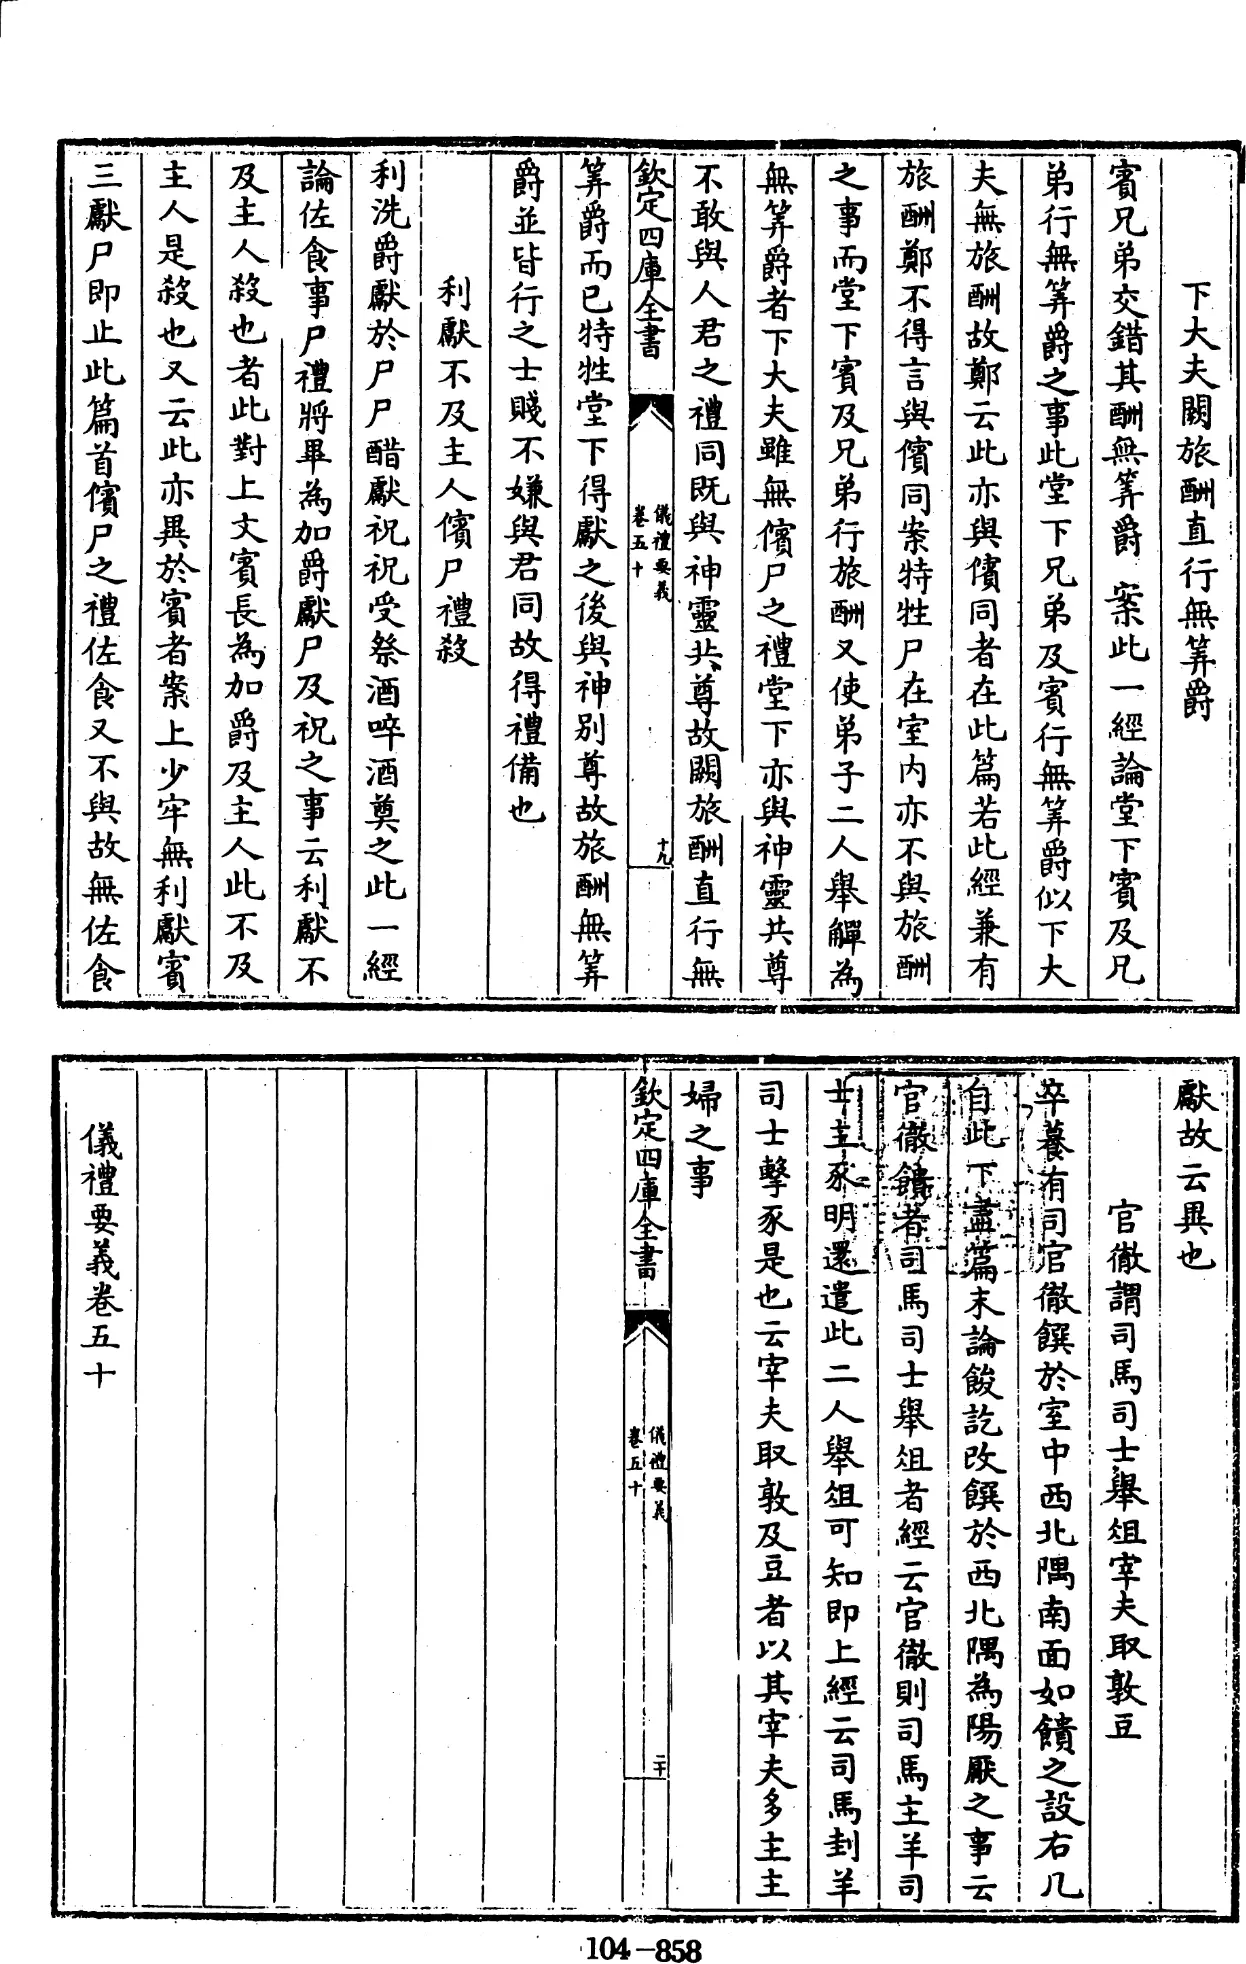 下大夫闕旅酬直行無筭爵
賓兄弟交錯其酬無筭爵 案此一經論堂下賓及兄
弟行無筭爵之事此堂下兄弟及賓行無筭爵似下大
夫無旅酬故鄭云此亦與儐同者在此篇若此經兼有
旅酬鄭不得言與儐同案特牲尸在室内亦不與旅酬
之事而堂下賓及兄弟行旅酬又使弟子二人舉觶為
無筭爵者下大夫雖無儐尸之禮堂下亦與神靈共尊
不敢與人君之禮同既與神靈共尊故闕旅酬直行無
欽定四庫全書
儀禮要義
卷五十
十九
筭爵而已特牲堂下得獻之後與神別尊故旅酬無筭
爵並皆行之士賤不嫌與君同故得禮備也
利獻不及主人儐尸禮殺
利洗爵獻於尸尸酢獻祝祝受祭酒啐酒奠之此一經
論佐食事尸禮將畢為加爵獻尸及祝之事云利獻不
及主人殺也者此對上文賓長為加爵及主人此不及
主人是殺也又云此亦異於賓者案上少牢無利獻賓
三獻尸即止此篇首儐尸之禮佐食又不與故無佐食
獻故云異也
官徹謂司馬司士舉俎宰夫取敦豆
卒養有司官徹饌於室中西北隅南面如饋之設右几
自此下盡篇末論餕訖改饌於西北隅為陽厭之事云
官徹饋者司馬司士舉俎者經云官徹則司馬主羊司
士主豕明還遣此二人舉俎可知即上經云司馬刲羊
司士擊豕是也云宰夫取敦及豆者以其宰夫多主主
婦之事
欽定四庫全書
儀禮要義
卷五十
二十
儀禮要義卷五十
104-858